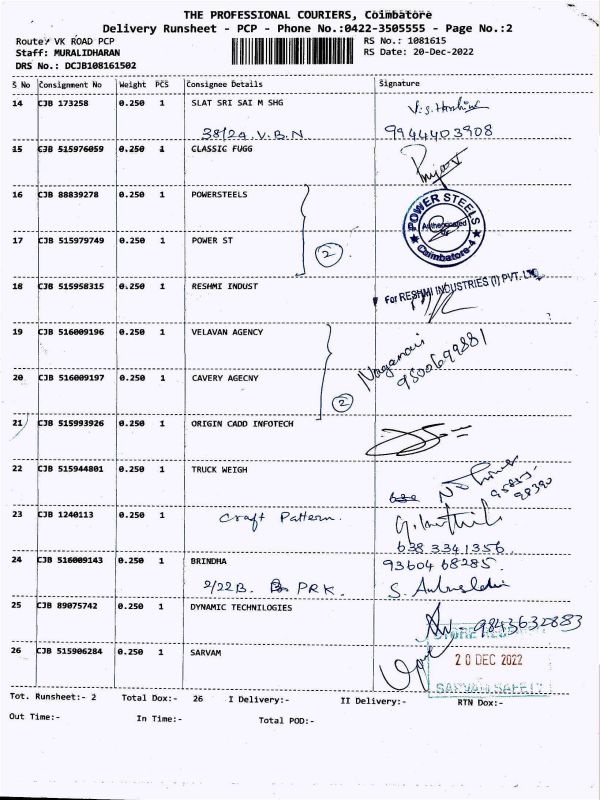 THE PROFESSIONAL COURIERS, Coimbatore
Delivery Runsheet - PCP - Phone No.:0422-3505555 - Page No.:2
Route: VK ROAD PCP
RS No.: 1081615
Staff: MURALIDHARAN
RS Date: 20-Dec-2022
DRS No.: DCJB108161502
S No Consignment No Weight PCS Consignee Details Signature
14 CJB 173258 0.250 1 SLAT SRI SAI M SHG
38/24. V.B.N. 9944403908
15 CJB 515976059 0.250 1 CLASSIC FUGG
16 CJB 88839278 0.250 1 POWERSTEELS
POWER STEELS
Authenticated
By
Coimbatore-4
17 CJB 515979749 0.250 1 POWER ST
2
18 CJB 515958315 0.250 1 RESHMI INDUST
For RESHMI INDUSTRIES (I) PVT. LTD
19 CJB 516009196 0.250 1 VELAVAN AGENCY
9500699881
20 CJB 516009197 0.250 1 CAVERY AGECNY
2
21 CJB 515993926 0.250 1 ORIGIN CADD INFOTECH
22 CJB 515944801 0.250 1 TRUCK WEIGH
23 CJB 1240113 0.250 1 Craft Pattern.
638 334 1356.
24 CJB 516009143 0.250 1 BRINDHA 93604 68285.
2/22B. PRK.
25 CJB 89075742 0.250 1 DYNAMIC TECHNILOGIES
9843632883
26 CJB 515906284 0.250 1 SARVAM
20 DEC 2022
SARVAM SAFETY
Tot. Runsheet:- 2 Total Dox:- 26 I Delivery:- II Delivery:- RTN Dox:-
Out Time:- In Time:- Total POD:-